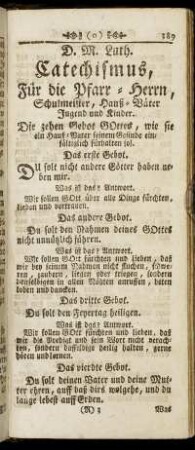 (o) 189
D. M. Luth.
Catechismus,
Für die Pfarr-Herrn,
Schulmeister, Hauß-Väter
Jugend und Kinder.
Die zehen Gebot GOttes, wie sie
ein Hauß-Vater seinem Gesinde ein-
fältiglich fürhalten sol.
Das erste Gebot.
DU solt nicht andere Götter haben ne-
ben mir.
Was ist das? Antwort.
Wir sollen GOtt über alle Dinge fürchten,
lieben und vertrauen.
Das andere Gebot.
Du solt den Nahmen deines GOttes
nicht unnützlich führen.
Was ist das? Antwort.
Wir sollen GOtt fürchten und lieben, daß
wir bey seinem Nahmen nicht fluchen, schwe-
ren, zaubern, liegen oder triegen, sondern
denselbigen in allen Nöthen anruffen, beten
loben und dancken.
Das dritte Gebot.
Du solt den Feyertag heiligen.
Was ist das? Antwort.
Wir sollen GOtt fürchten und lieben, daß
wir die Predigt und sein Wort nicht verach-
ten, sondern dasselbige heilig halten, gerne
hören und lernen.
Das vierdte Gebot.
Du solt deinen Vater und deine Mut-
ter ehren, auff daß dirs wolgehe, und du
lange lebest auff Erden.
Was